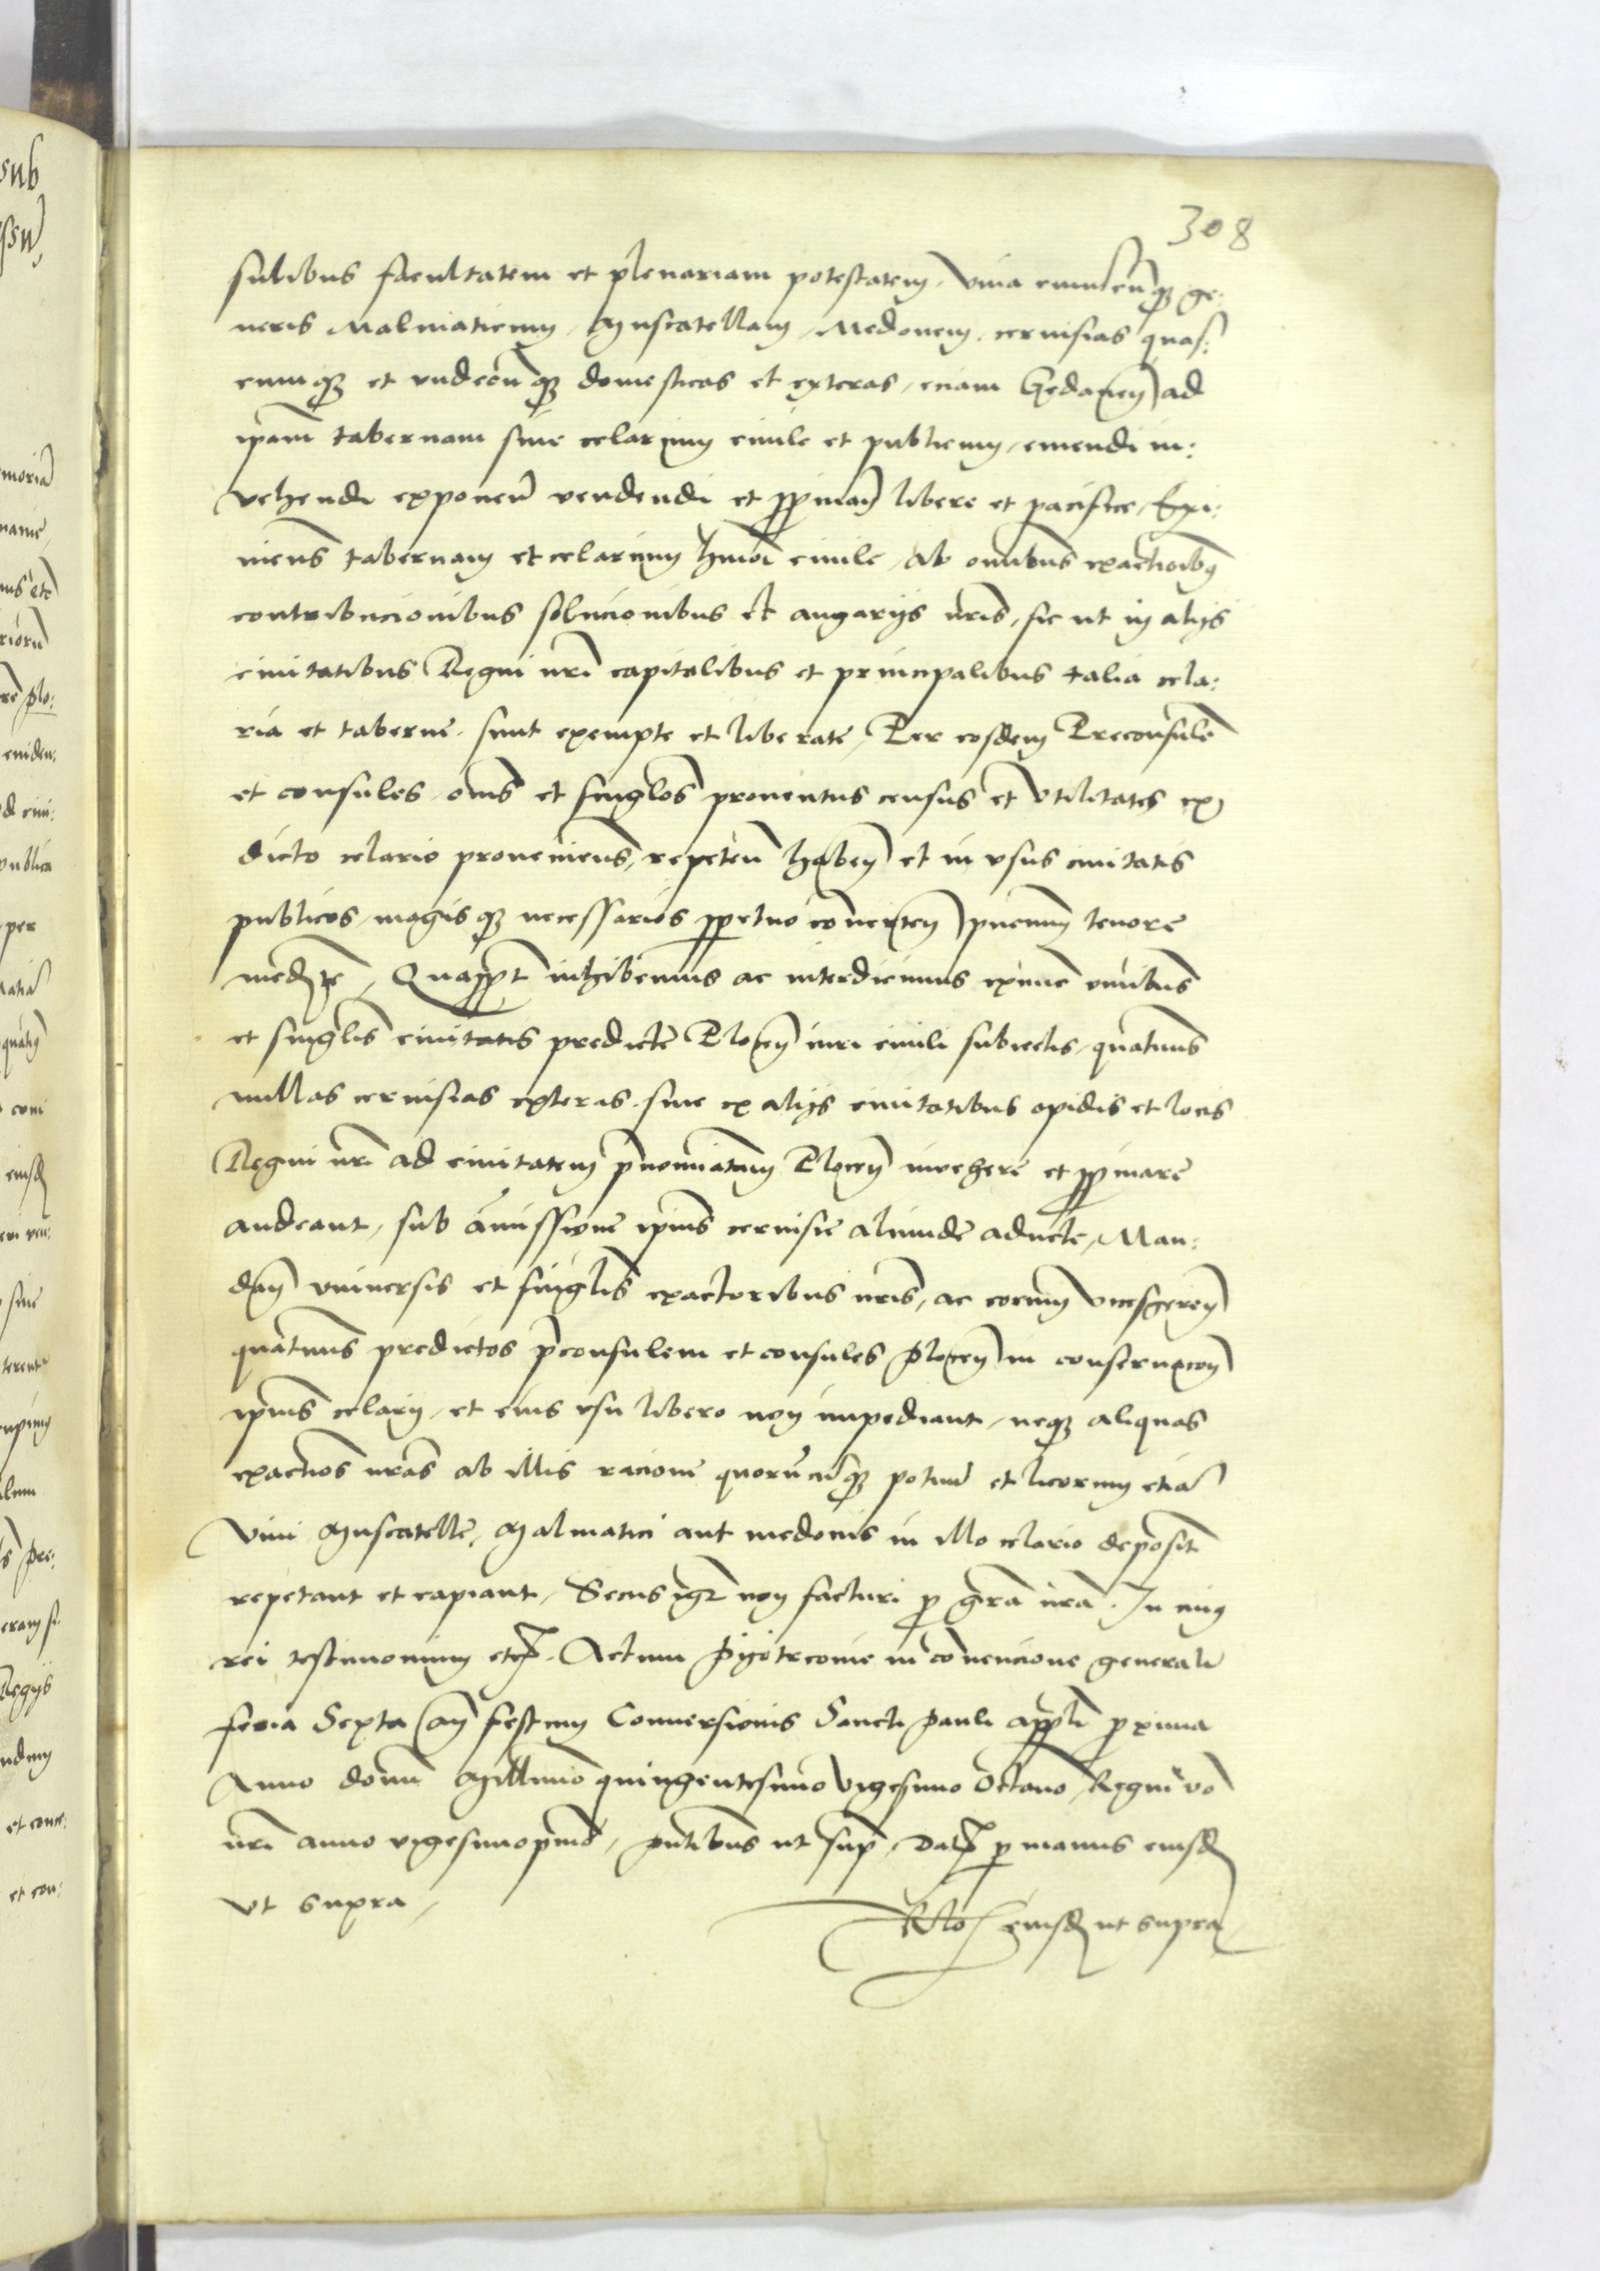 308
sulibus facultatem et plenariam potestatem, vina cuiuscunq3 ge:
neris Malmaticum, Muscatellam, Medonem, cervisias quas:
cumq3 et undecunq3 domesticas et exteras, eciam Gedanen ad
ipam tabernam sive celarium civile et publicum, emendi in:
vehendi exponen vendendi et ppinan libere et pacifice, Exi:
mens tabernam et celarium hmoi civile, ab omnibus exactionibus
contribucionibus solucionibus et angarijs nris, sic ut in alijs
civitatibus Regni nri capitalibus et principalibus talia cela:
ria et taberne sunt exempte et liberate, Per eosdem Preconsulem
et consules, omes et singlos proventus census et utilitates ex
dicto celario provenients, repeten haben et in usus civitatis
publicos, magisq3 necessarios ppetuo converten pncium tenore
med_te, Quappt inhibemus ac interdicimus exnunc omnibus
et singlis civitatis predicte Plocen iuri civili subiectis, quatinus
nullas cervisias exteras, sive ex alijs civitatibus opidis et locis
Regni nri ad civitatem pnominatam Plocen invehere et ppinare
audeant, sub amissione ipius cervisie aliunde aducte, Man:
dan universis et singlis exactoribus nris, ac eorum vicesgeren
quatinus predictos pconsulem et consules Plocen in conservacon
ipius celary, et eius usu libero non impediant, neq3 aliquas
exactioes nras ab illis racione quorumcunq3 potuum et licorum etiam
Vini Muscatelle, Malmatici aut medonis in illo celario deposit
repetant et capiant, Secus igr non facturi p gra nra. In cuius
rei testimonium etc. Actum Pyotrcovie in convencione generali
feria Sexta an festum Conversionis Sancti Pauli appli proxima
Anno domi Millimo quingentesimo vigesimo Octavo, Regni vo
nri anno vigesimoprimo, pntibus ut sup, Dat p manus eiusd
ut supra,
Rlo eiusd ut supra